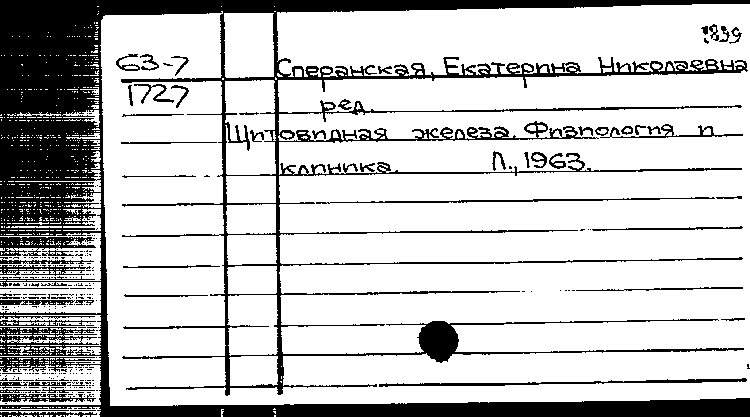 63-7
1727
Сперанская, Екатерина Николаевна
ред.
Щитовидная железа. Физиология и
клиника. Л., 1963.